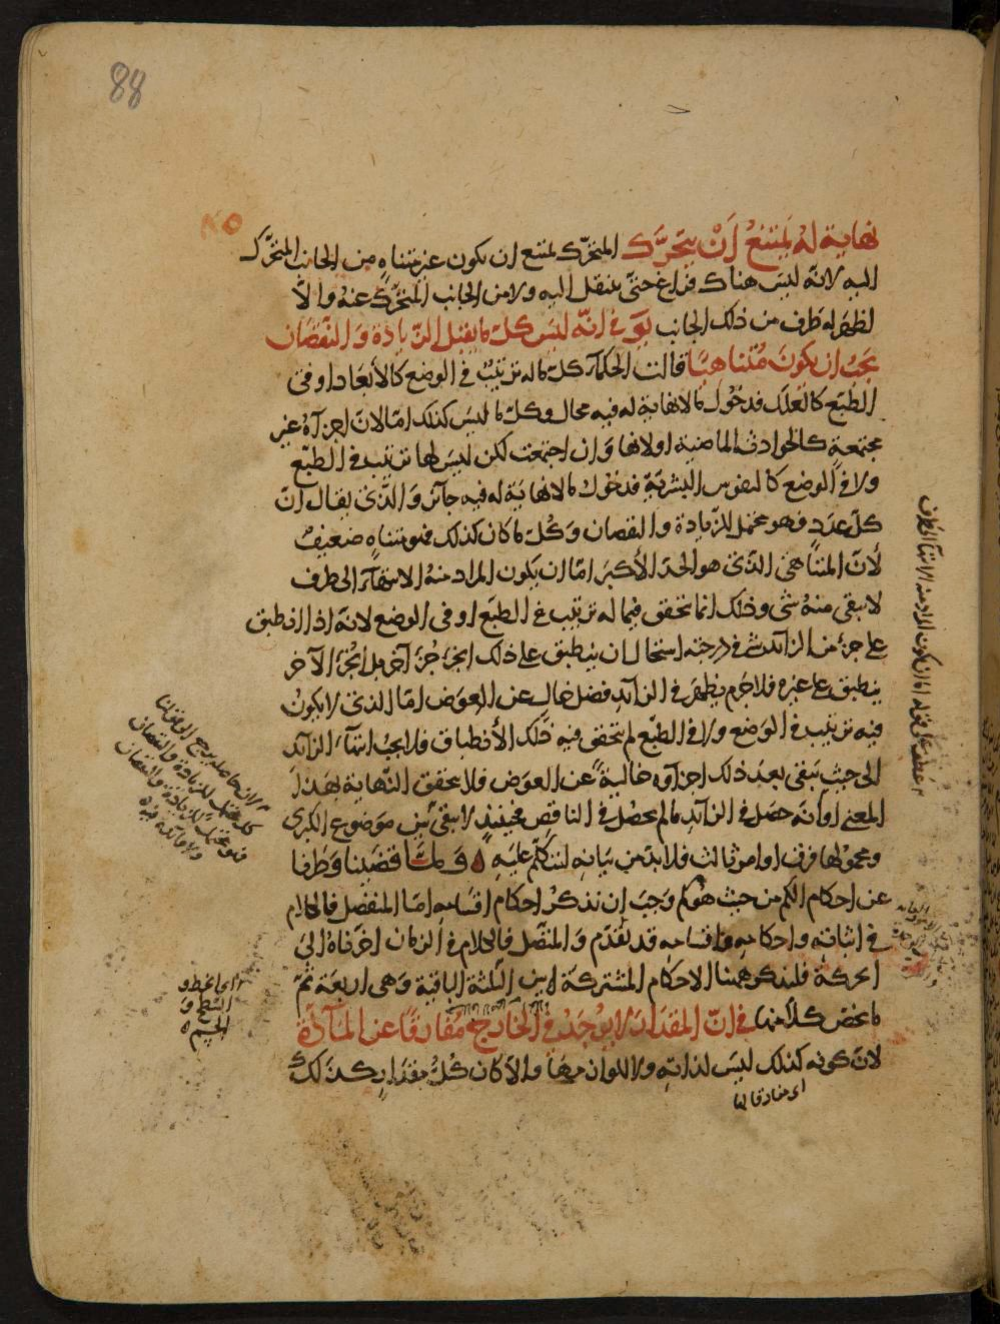 88
٨٥
نهاية له يمتنع ان يتحرك المتحرك يمتنع ان يكون غير متناه من الجانب المتحرك
اليه لانه ليس هناك فراغ حتى ينتقل اليه ولا من الجانب المتحرك عنه والا
لظهر له طرف من ذلك الجانب يو في انه ليس كل ما يقبل الزيادة والنقصان
يجب ان يكون متناهيا قالت الحكماء كل ما له ترتيب في الوضع كالأبعاد او في
الطبع كالعلل فدخول ما لا نهاية له فيه محال وكل ما ليس كذلك اما لان اجزآءه غير
مجتمعة كالحوادث الماضية او لانها وان اجتمعت لكن ليس لها ترتيب في الطبع
ولا في الوضع كالنفوس البشرية فدخول ما لا نهاية له فيه جائز والذى يقال ان
كل عدد فهو محتمل للزيادة والنقصان وكل ما كان كذلك فهو متناه ضعيف
لأن المتناهى الذى هو الحد الأكبر اما ان يكون المراد منه الانتهاء الى طرف
لا يبقى منه شى وذلك انما يتحقق فيما له ترتيب في الطبع او في الوضع لانه اذا انطبق
على جزء من الزائد شى في درجته استحال ان ينطبق على ذلك الجزء جزء آخر بل الجزء الآخر
ينطبق على غيره فلاجرم يظهر في الزائد فضل خال عن العوض اما الذى لا يكون
فيه ترتيب في الوضع ولا في الطبع لم يتحقق فيه ذلك الأنطباق فلا يجب انتهاء الزائد
الى حيث يبقى بعد ذلك اجزآؤه خالية عن العوض فلا يتحقق النهاية بهذا
المعنى او انه حصل في الزائد ما لم يحصل في الناقص فحينئذ لا يبقى بين موضوع الكبرى
ومحمولها فرق او امر ثالث فلا بد من بيانه لنتكلم عليه ه ولما قضينا وطرنا
عن احكام الكم من حيث هو كم وجب ان نذكر احكام اقسامه اما المنفصل فالكلام
في اثباته واحكامه واقسامه قد تقدم والمتصل فالكلام في الزمان اخرناه الى
الحركة فلنذكر ههنا الاحكام المشتركة بين الثلثة الباقية وهى اربعة ثم
ما يخص كلا منها في ان المقدار لا يوجد في الخارج مفارقا عن المآدة
لان كونه كذلك ليس لذاته ولا للوازمها والا لكان كل مقدار كذلك
اى مفارقا لها
عطف على قوله اما ان يكون المراد منه الانتهاء الى طرف
اى الخط و
السطح و
الجسم ه